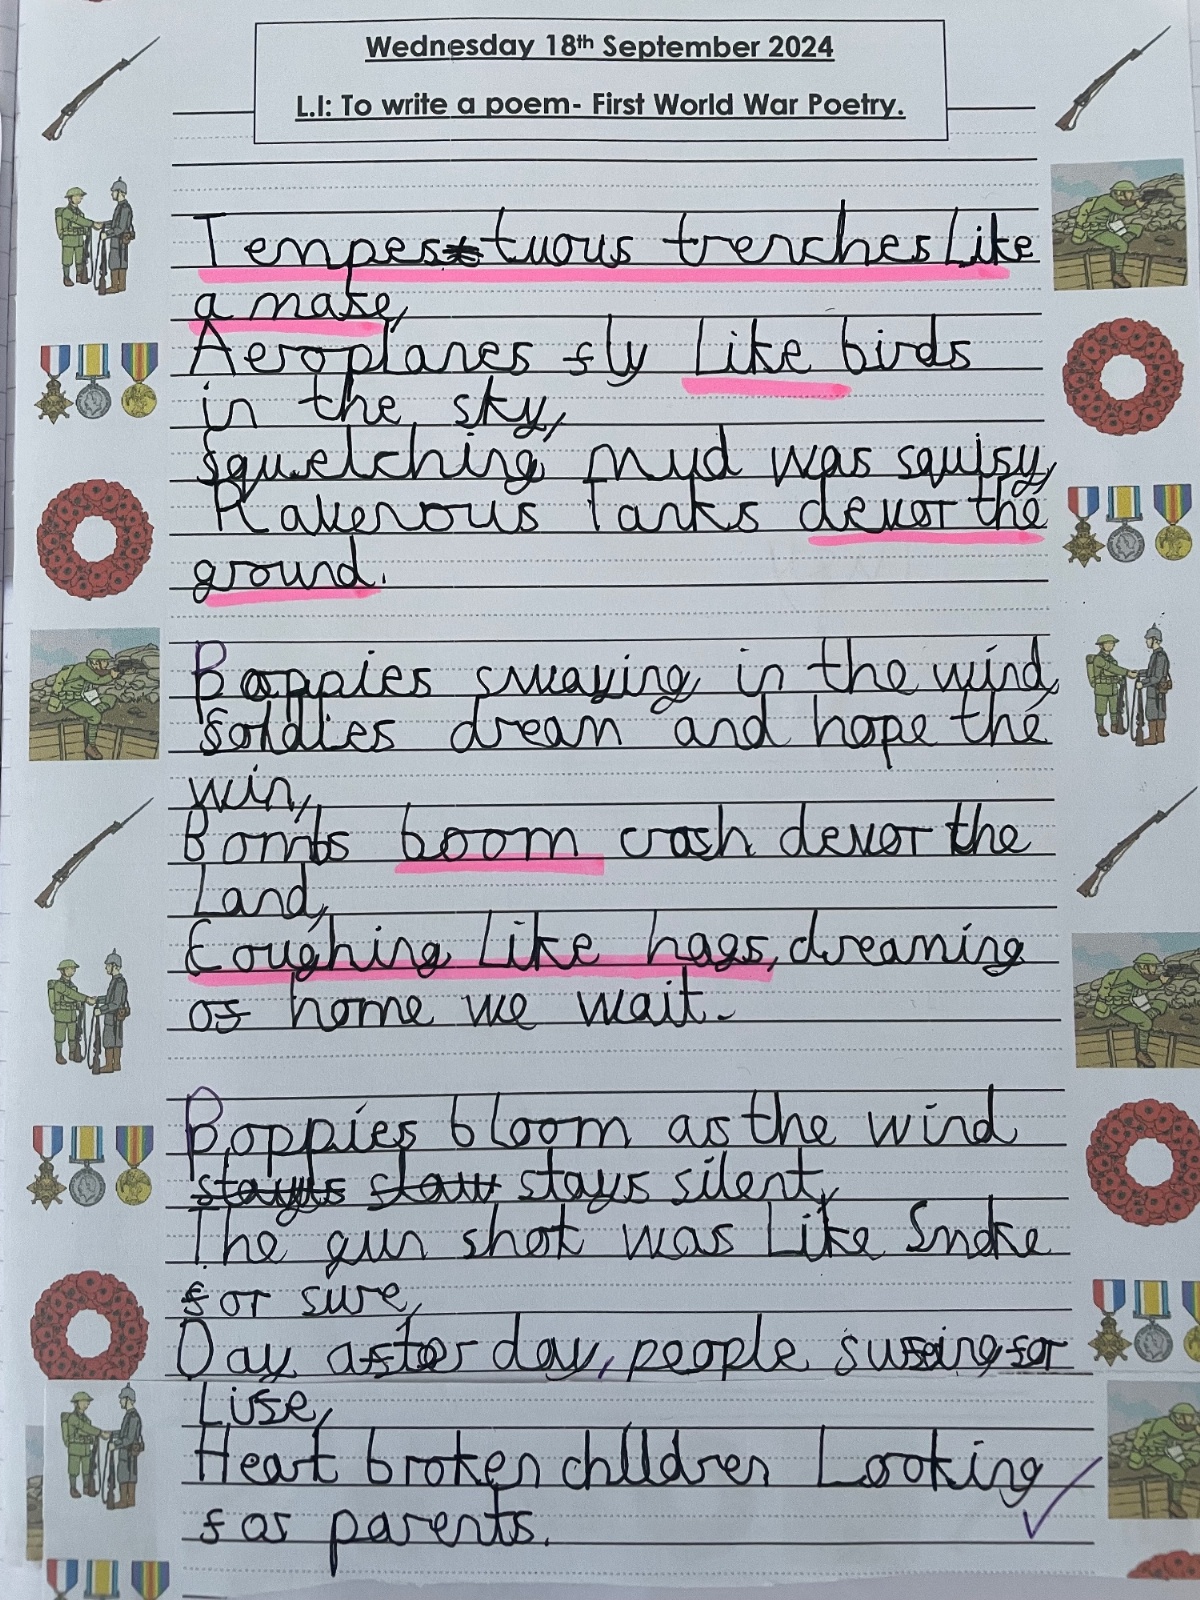 Wednesday 18th September 2024
L.I: To write a poem- First World War Poetry.
Tempestuous trenches like
a maze,
Aeroplanes fly like birds
in the sky,
Squelching mud was squisy,
Ravenous Tanks devor the
ground.
Poppies swaying in the wind,
Soldies dream and hope the
win,
Bombs boom crash devor the
Land,
Coughing like hags, dreaming
of home we wait.
Poppies bloom as the wind
stays silent,
The gun shot was like Smoke
for sure,
Day after day, people suffering for
Life,
Heart broken children Looking
for parents.